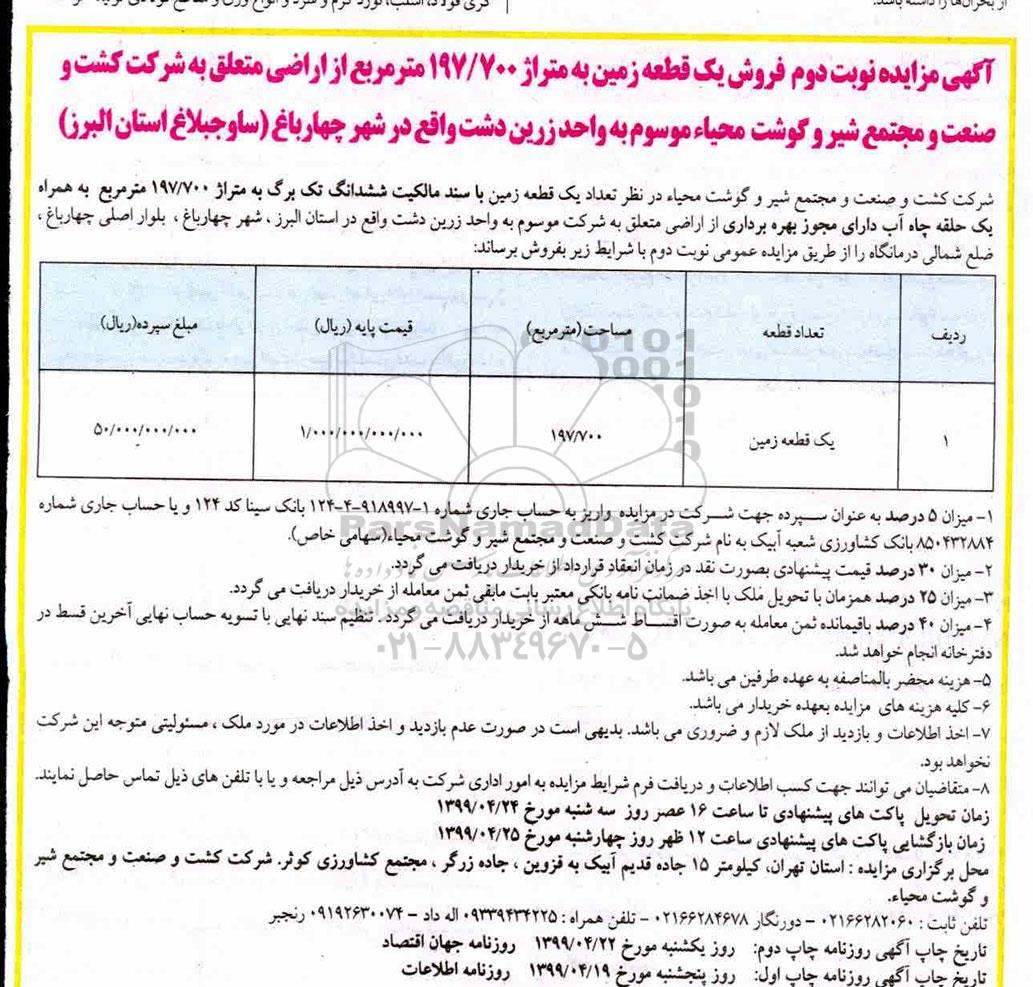 از بحران‌ها را داشته باشد.
آگهی مزایده نوبت دوم فروش یک قطعه زمین به متراژ ۱۹۷/۷۰۰ مترمربع از اراضی متعلق به شرکت کشت و
صنعت و مجتمع شیر و گوشت محیاء موسوم به واحد زرین دشت واقع در شهر چهارباغ (ساوجبلاغ استان البرز)
شرکت کشت و صنعت و مجتمع شیر و گوشت محیاء در نظر تعداد یک قطعه زمین با سند مالکیت ششدانگ تک برگ به متراژ ۱۹۷/۷۰۰ مترمربع به همراه
یک حلقه چاه آب دارای مجوز بهره برداری از اراضی متعلق به شرکت موسوم به واحد زرین دشت واقع در استان البرز ، شهر چهارباغ ، بلوار اصلی چهارباغ ،
ضلع شمالی درمانگاه را از طریق مزایده عمومی نوبت دوم با شرایط زیر بفروش برساند:
ردیف تعداد قطعه مساحت (مترمربع) قیمت پایه (ریال) مبلغ سپرده(ریال)
۱ یک قطعه زمین ۱۹۷/۷۰۰ ۱/۰۰۰/۰۰۰/۰۰۰/۰۰۰ ۵۰/۰۰۰/۰۰۰/۰۰۰
۱- میزان ۵ درصد به عنوان سپرده جهت شرکت در مزایده واریز به حساب جاری شماره ۱-۹۱۸۹۹۷-۴-۱۲۴ بانک سینا کد ۱۲۴ و یا حساب جاری شماره
۸۵۰۴۳۲۸۸۴ بانک کشاورزی شعبه آبیک به نام شرکت کشت و صنعت و مجتمع شیر و گوشت محیاء(سهامی خاص).
۲- میزان ۳۰ درصد قیمت پیشنهادی بصورت نقد در زمان انعقاد قرارداد از خریدار دریافت می گردد.
۳- میزان ۲۵ درصد همزمان با تحویل ملک با اخذ ضمانت نامه بانکی معتبر بابت مابقی ثمن معامله از خریدار دریافت می گردد.
۴- میزان ۴۰ درصد باقیمانده ثمن معامله به صورت اقساط شش ماهه از خریدار دریافت می گردد . تنظیم سند نهایی با تسویه حساب نهایی آخرین قسط در
دفترخانه انجام خواهد شد.
۵- هزینه محضر بالمناصفه به عهده طرفین می باشد.
۶- کلیه هزینه های مزایده بعهده خریدار می باشد.
۷- اخذ اطلاعات و بازدید از ملک لازم و ضروری می باشد. بدیهی است در صورت عدم بازدید و اخذ اطلاعات در مورد ملک ، مسئولیتی متوجه این شرکت
نخواهد بود.
۸- متقاضیان می توانند جهت کسب اطلاعات و دریافت فرم شرایط مزایده به امور اداری شرکت به آدرس ذیل مراجعه و یا با تلفن های ذیل تماس حاصل نمایند.
زمان تحویل پاکت های پیشنهادی تا ساعت ۱۶ عصر روز سه شنبه مورخ ۱۳۹۹/۰۴/۲۴
زمان بازگشایی پاکت های پیشنهادی ساعت ۱۲ ظهر روز چهارشنبه مورخ ۱۳۹۹/۰۴/۲۵
محل برگزاری مزایده : استان تهران، کیلومتر ۱۵ جاده قدیم آبیک به قزوین ، جاده زرگر ، مجتمع کشاورزی کوثر. شرکت کشت و صنعت و مجتمع شیر
و گوشت محیاء.
تلفن ثابت : ۰۲۱۶۶۲۸۲۰۶۰ – دورنگار ۰۲۱۶۶۲۸۴۶۷۸ - تلفن همراه : ۰۹۳۳۹۴۳۴۲۲۵ اله داد – ۰۹۱۹۲۶۳۰۰۷۴ رنجبر
تاریخ چاپ آگهی روزنامه چاپ دوم: روز یکشنبه مورخ ۱۳۹۹/۰۴/۲۲ روزنامه جهان اقتصاد
تاریخ چاپ آگهی روزنامه چاپ اول: روز پنجشنبه مورخ ۱۳۹۹/۰۴/۱۹ روزنامه اطلاعات
ParsNamadData
پایگاه اطلاع رسانی مناقصه و مزایده
۰۲۱-۸۸۳۴۹۶۷۰-۵